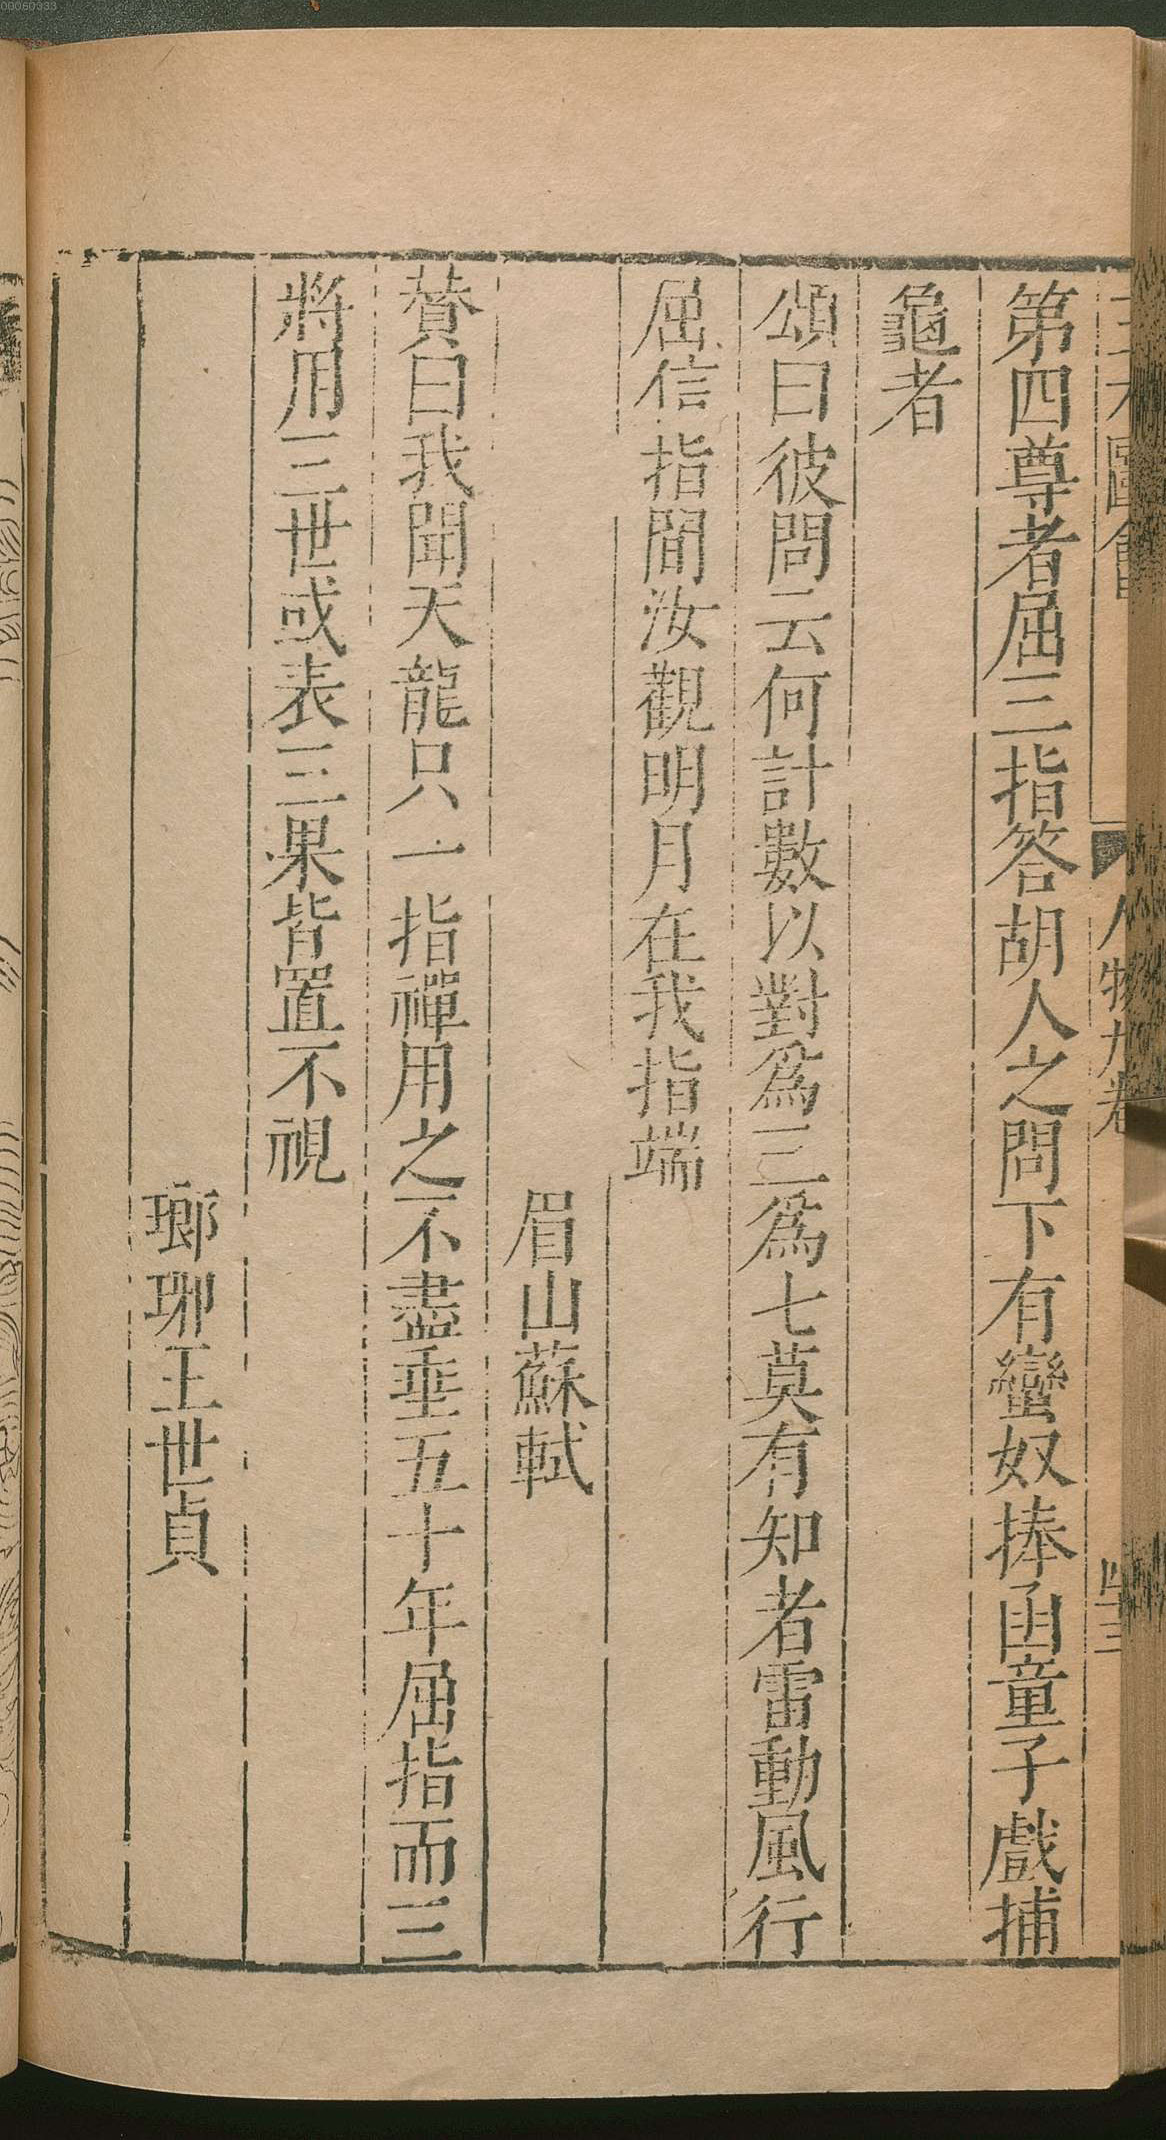 三才圖會 人物九卷
第四尊者屈三指答胡人之問下有蠻奴捧函童子戲捕
龜者
頌曰彼問云何計數以對爲三爲七莫有知者雷動風行
屈信指間汝觀明月在我指端
眉山蘇軾
賛曰我聞天龍只一指禪用之不盡垂五十年屈指而三
將用三世或表三果皆置不視
瑯琊王世貞
00060333